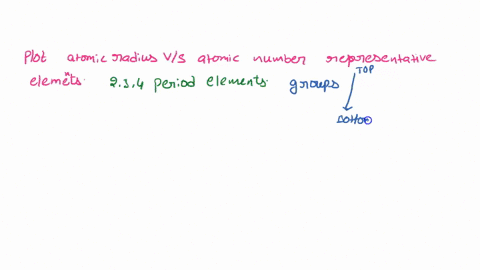 Plot atomic radius V/s atomic number representative
elemets n 2.3.4 period elements groups TOP